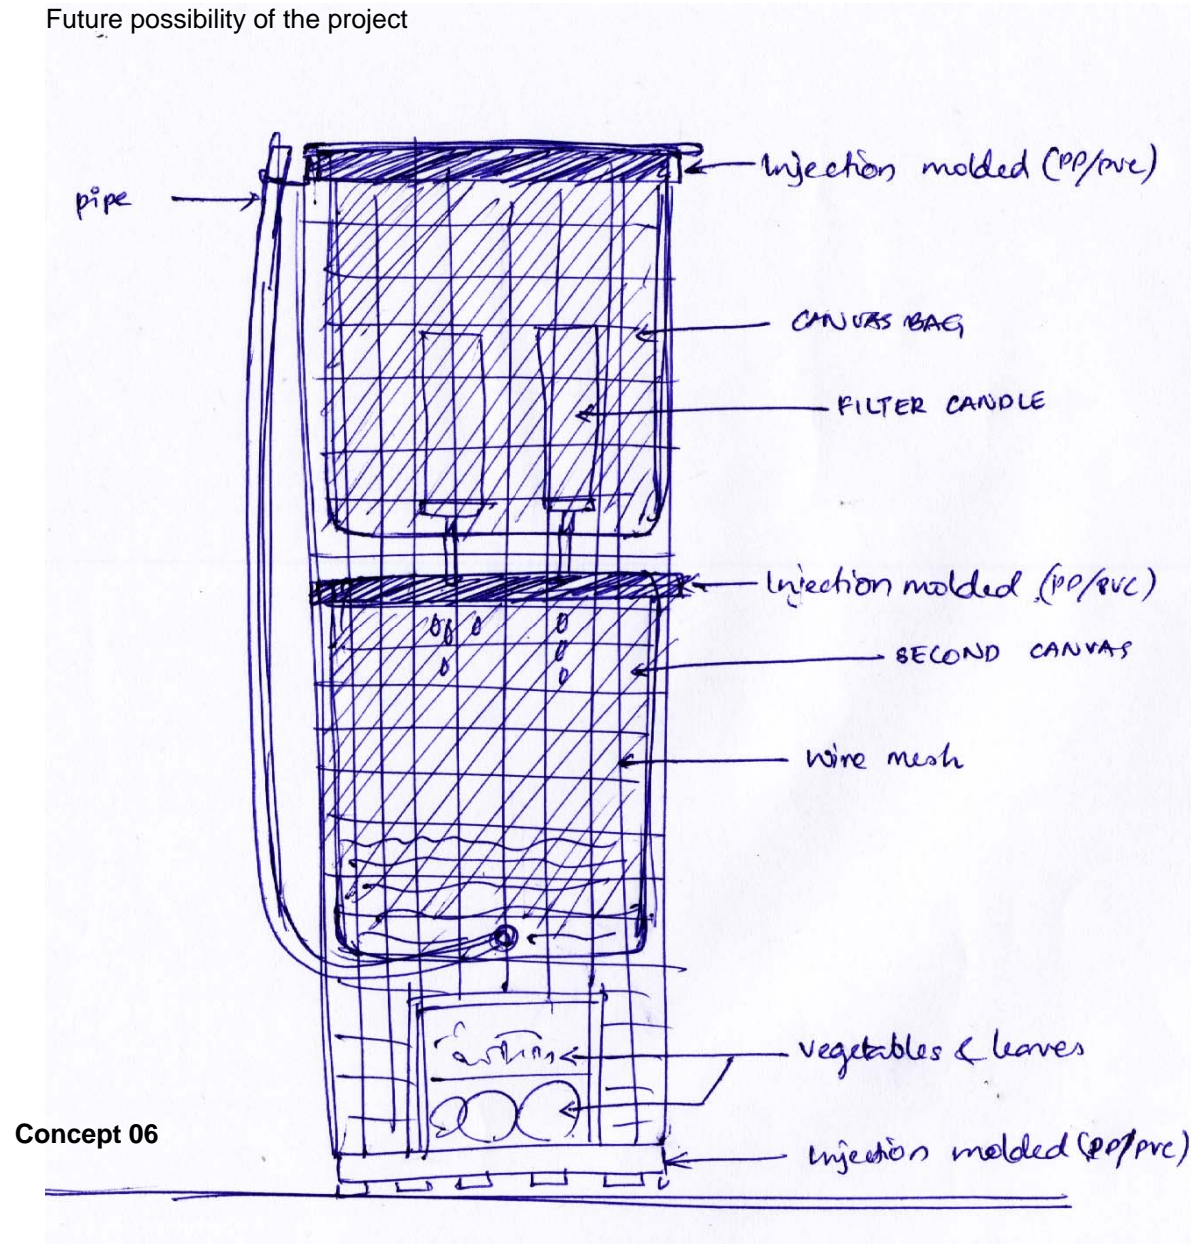 Future possibility of the project
Injection molded (PP/PVC)
pipe
CANVAS BAG
FILTER CANDLE
Injection molded (PP/PVC)
SECOND CANVAS
wire mesh
vegetables & leaves
Concept 06
Injection molded (PP/PVC)